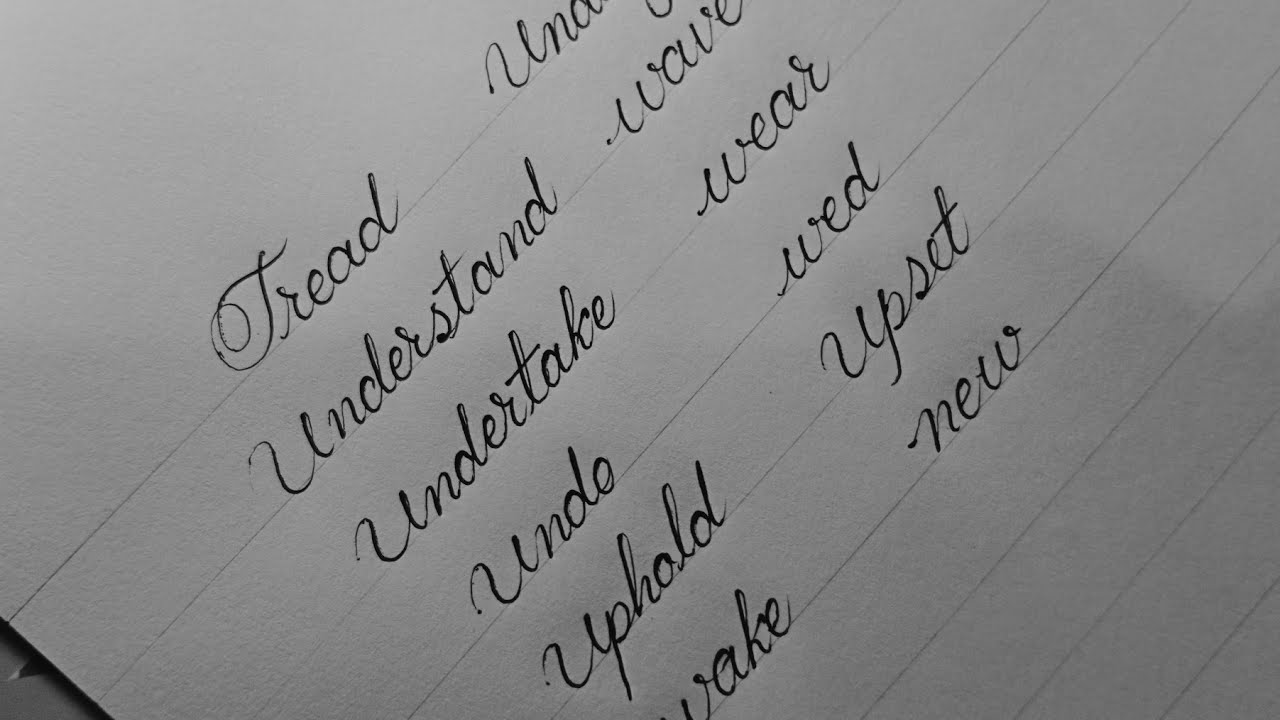 Tread
Understand wave
Undertake wear
Undo wed
Uphold Upset
wake new